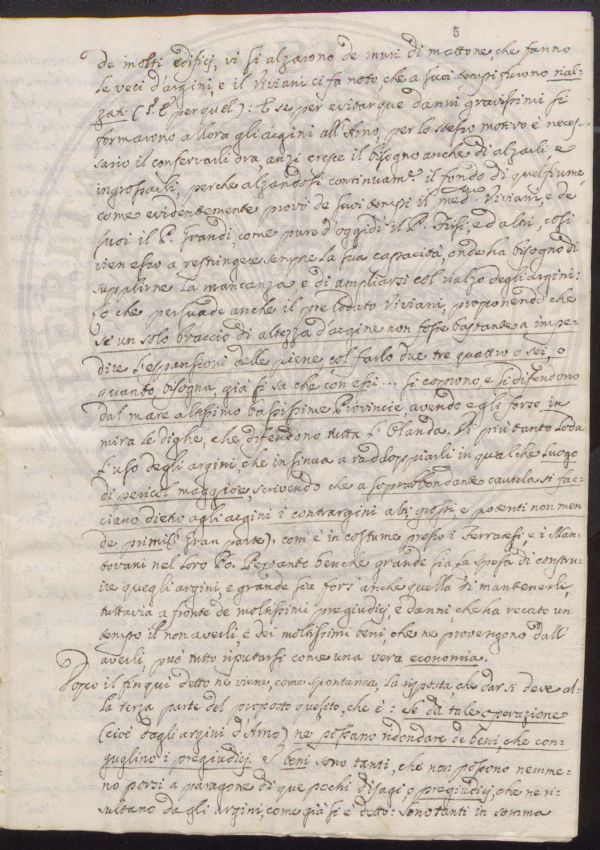 5
de molti edifizj, vi si alzarono de muri di mattone, che fanno
le veci d'argini, e il Viviani ci fa noto, che a suoi tempi furono rial-
zati: E se per evitar que danni gravissimi si
formarono allora gli argini all'Arno, per lo stesso motivo è neces-
sario il conservarli ora, anzi cresce il bisogno anche di alzarli e
ingrossarli, perche alzandosi continuam.e il fondo di quel fiume,
come evidentemente provò de suoi tempi il med.mo Viviani, e de
suoi il P. Grandi, come pure d'oggidi il P. , ed altri, così
vien esso a restringere sempre la sua capacità, onde ha bisogno di
supplirne la mancanza, e di ampliarsi col rialzo degli argini:
lo che persuade anche il prelodato Viviani, proponendo che
se un solo braccio di altezza d'argine non fosse bastante a impe-
dire l'espansioni delle piene col farlo due tre quattro o sei, o
quanto bisogna, già si sa che con essi... si coprono, e si difendono
dal mare altissimo bassissime Provincie, avendo egli forse in
mira le dighe, che difendono tutta l'Olanda. Di più tanto loda
l'uso degli argini che insinua a raddoppiarli in qualche luogo
di pericol maggiore, scrivendo che a soprabbondante cautela si fac-
ciano dietro agli argini i contrargini alti grossi, e potenti non men
de primi (gran parte), com'è in costume presso i Ferraresi, e i Man-
tovani nel loro Po. Pertanto benche grande sia la spesa di constru-
ire quegli argini, e grande sia fors'anche quella di mantenerli,
tuttavia a fronte de moltissimi pregiudizj, e danni, che ha recato un
tempo il non averli, e dei moltissimi beni, che ne provengono dall'
averli, può tutto riputarsi come una vera economia.
Dopo il fin qui detto ne viene, come spontanea, la risposta che dar si deve al-
la terza parte del proposto quesito, che è: se da tale operazione
(cioè dagli argini d'Arno) ne possano ridondare de beni, che con-
guaglino i pregiudizj. I beni sono tanti, che non possono nemme-
no porsi a paragone di que pochi disagi, o pregiudizj, che ne ri-
sultano dagli argini, come già si è detto: sono tanti in somma